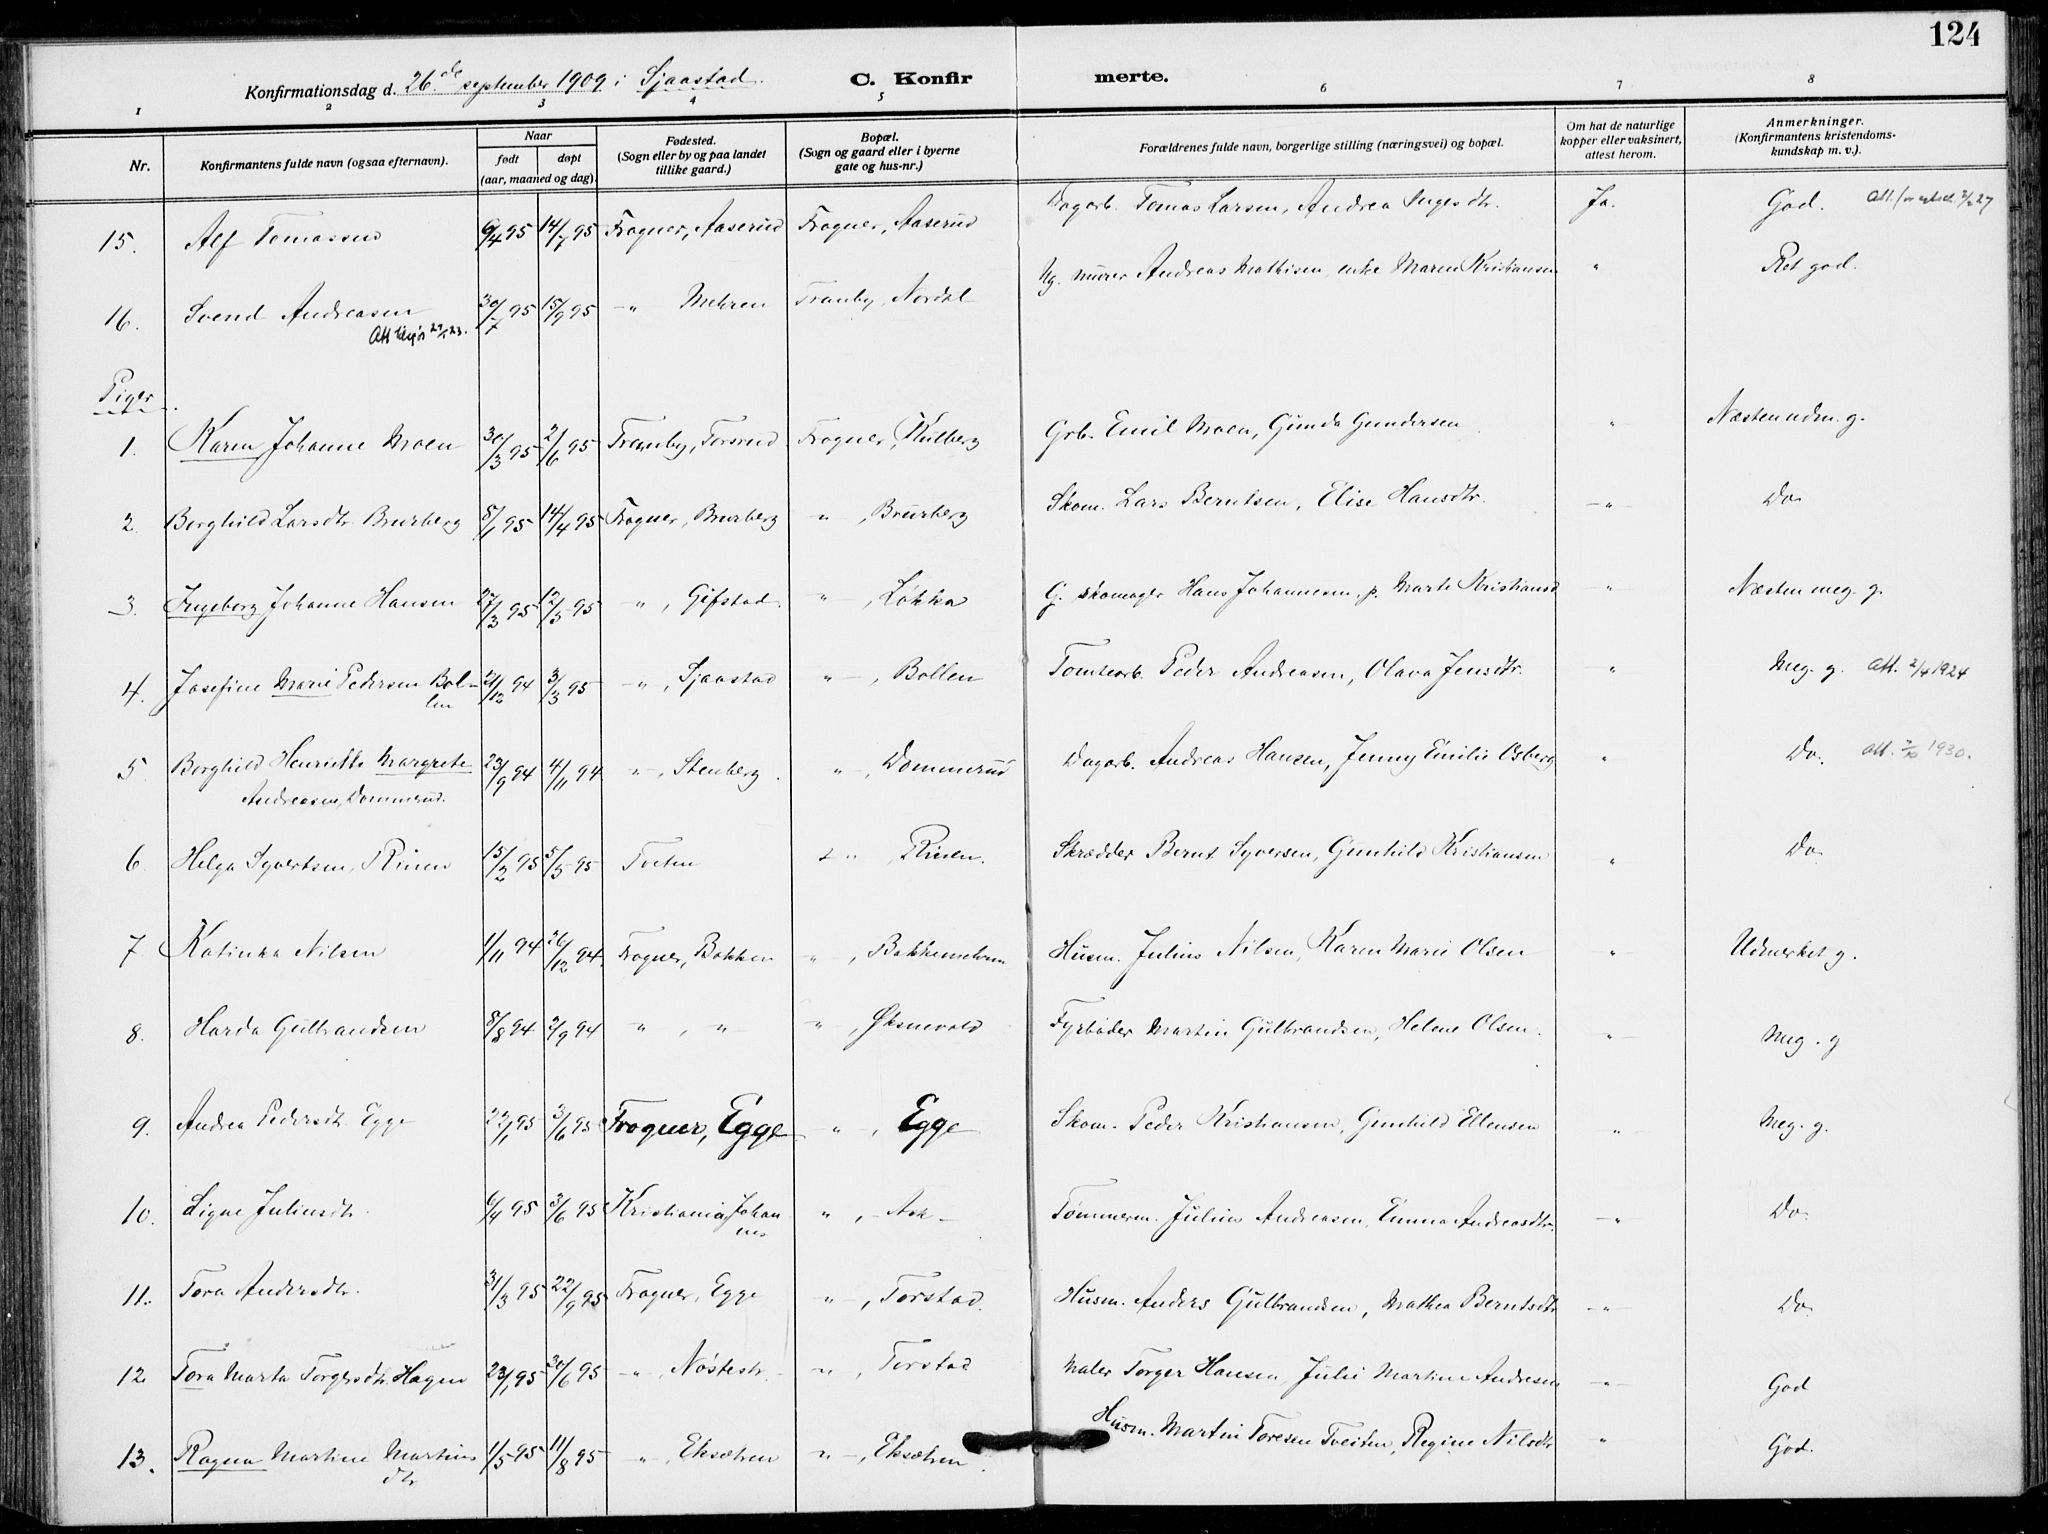 124
Konfirmationsdag d. 26.de september 1909 i Sjaastad. C. Konfirmerte.
1 2 3 4 5 6 7 8
Nr. Konfirmantens fulde navn (ogsaa efternavn). Naar født døpt (aar, maaned og dag). Fødested. (Sogn eller by og paa landet tillike gaard.) Bopæl. (Sogn og gaard eller i byerne gate og hus-nr.) Forældrenes fulde navn, borgerlige stilling (næringsvei) og bopæl. Om hat de naturlige kopper eller vaksinert, attest herom. Anmerkninger. (Konfirmantens kristendomskundskap m. v.).
15. Alf Tomassen 6/4 95 14/7 95 Frogner, Aaserud Frogner, Aaserud Dagarb. Tomas Larsen, Andrea Ingesdtr. Ja. God.
16. Svend Andreasen 30/7 95 15/9 95 -"- Mehren Tranby, Nordal Ug. murer Andreas Mathisen, enke Maren Kristiansen " Ret god.
Piger.
1. Karen Johanne Moen 30/3 95 2/6 95 Tranby, Torsrud Frogner, Kulberg Grb. Emil Moen, Gunda Gundersen " Næsten udm. g.
2. Borghild Larsdtr. Brurberg 8/1 95 14/4 95 Frogner, Brurberg " , Brurberg Skom. Lars Berntsen, Elise Hansdtr. -"- Do
3. Ingeborg Johanne Hansen 27/2 95 12/5 95 -"-, Gifstad. "-, Løkka G. skomager Hans Johannesen, p. Marte Kristiansd " Næsten meg. g.
4. Josefine Marie Pedersen Bollen 21/12 94 3/3 95 -"-, Sjaastad "-, Bollen Tomtearb. Peder Andreasen, Olava Jensdtr. " Meg. g. Att. 2/4 1924
5. Borghild Henriette Margrete 23/9 94 4/11 94 "-, Stenberg. "-, Dommerud Dagarb. Andreas Hansen, Jenny Emilie Osberg " Do. Att. 7/10 1930.
Andreasen, Dommerud.
6. Helga Syvertsen, Rinen 15/2 95 5/5 95 Tveten "-, Rinen. Skrædder Bernt Syversen, Gunhild Kristiansen " Do
7. Katinka Nilsen 1/11 94 26/12 94. Frogner, Bakken "-, Husm. Julius Nilsen, Karen Marie Olsen " Udmerket g.
8. Harda Gulbrandsen 8/8 94 2/9 94 " , " " , Øksnevold Fyrbøder Martin Gulbrandsen, Helene Olsen. " Meg. g
9. Andrea Pedersdtr. Egge 22/1 95 3/6 95 Frogner, Egge "-, Egge Skom. Peder Kristiansen, Gunhild Ellensen " Meg. g.
10. Signe Juliusdtr. 6/4 95 3/6 95 Kristiania, Johannes " , Ask Tømmerm. Julius Andreasen, Emma Andreasdtr. -"- Do.
11. Tora Andersdtr. 31/3 95 22/9 95 Frogner, Egge "-, Torstad. Husm. Anders Gulbrandsen, Mathea Berntsdtr -"- Do
12. Tora Marta Torgersdtr. Hagen 23/1 95 30/6 95 -"-, Nøstestr. "-, Torstad Maler Torger Hansen, Julie Martine Andresen -"- God
13. Ragna Martine Martinsdtr 1/5 95 11/8 95 -"-, Eksætren "-, Eksætren. Husm. Martin Toresen Tveiten, Regine Nilsdtr " God.